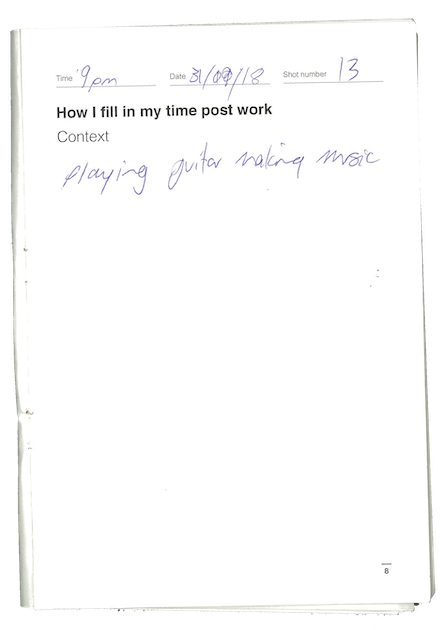 Time 9pm Date 31/07/18 Shot number 13
How I fill in my time post work
Context
playing guitar making music
8